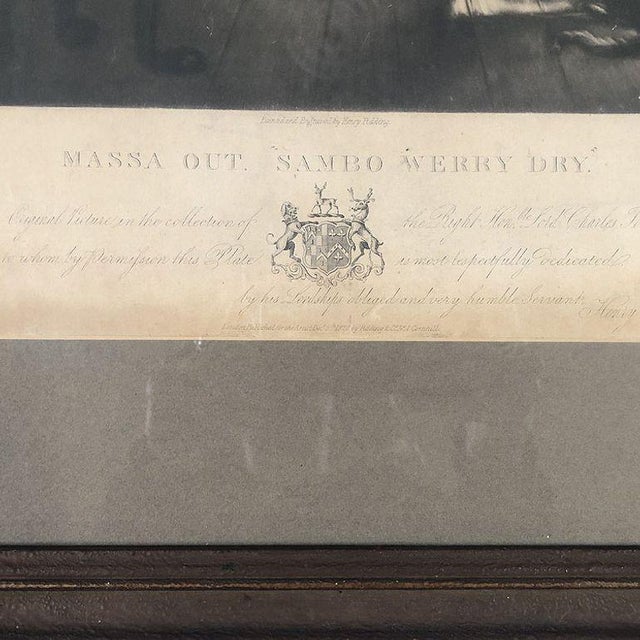 Painted and Engraved by Henry Pidding
MASSA OUT. "SAMBO WERRY DRY."
Original Picture in the collection of the Right Hon.ble Lord Charles
to whom by Permission this Plate is most respectfully Dedicated
by his Lordships obliged and very humble Servant, Henry
London Published for the Artist by Cornhill.